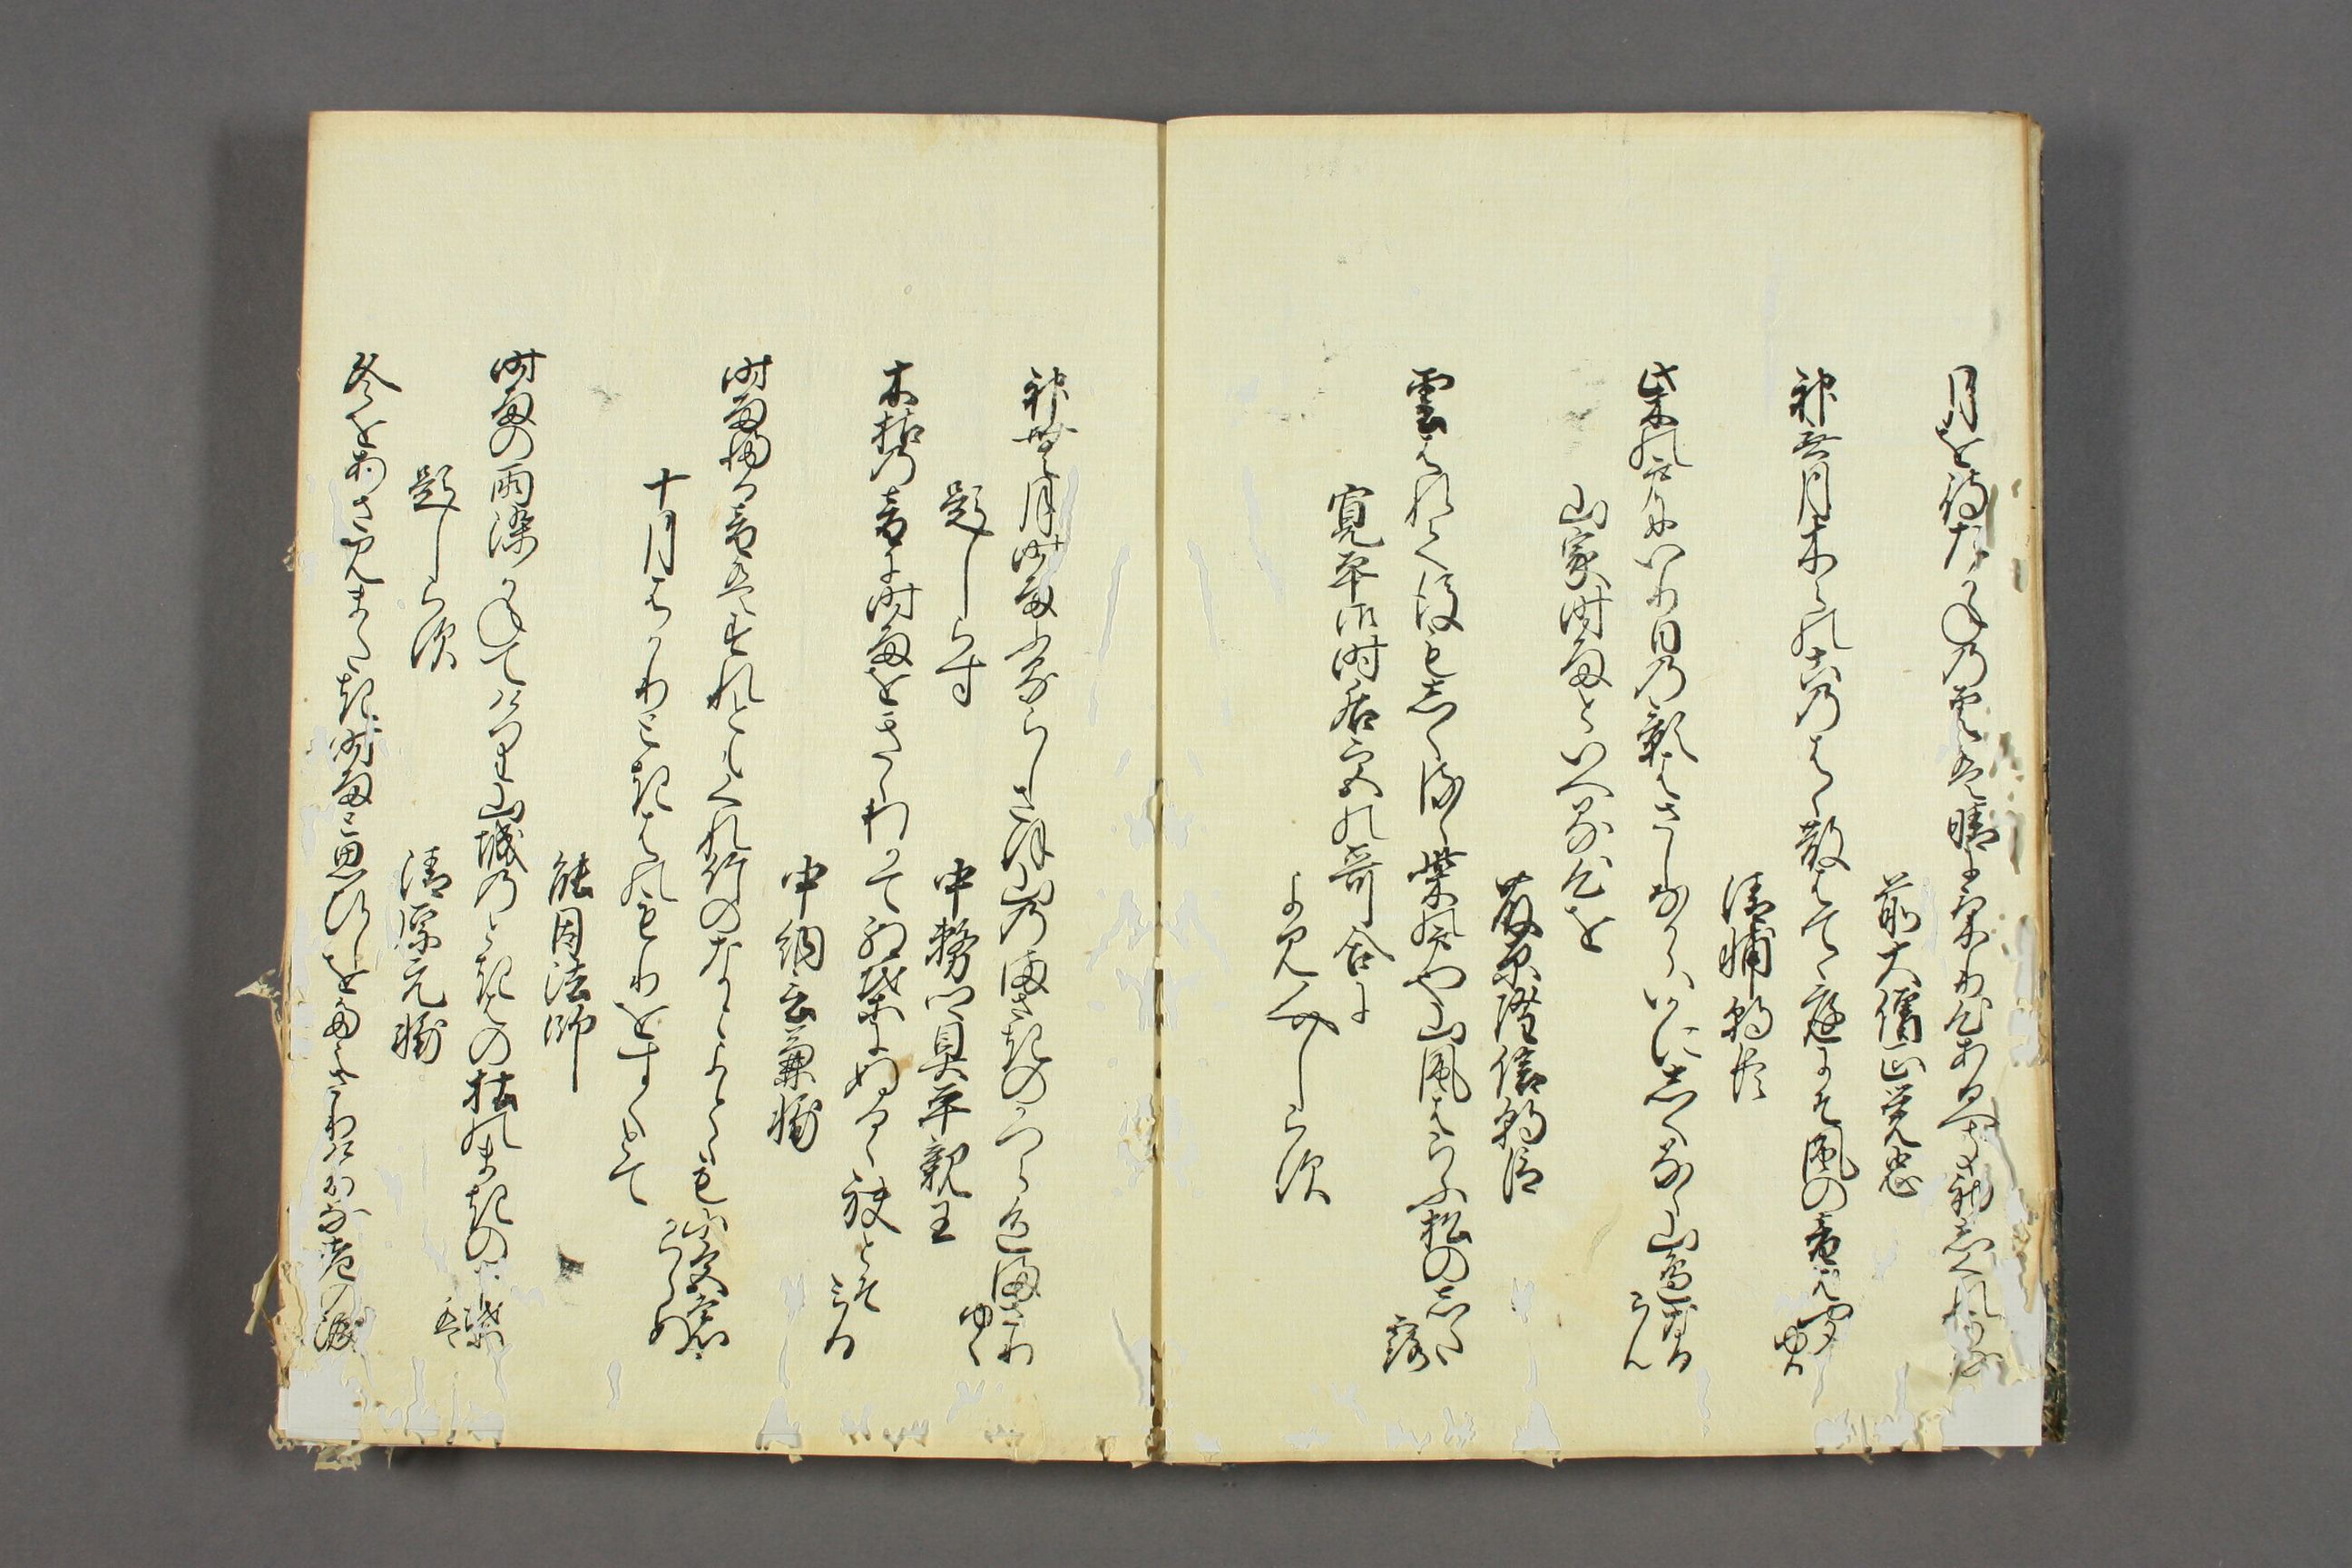 月を待たかねの雲は晴にけり心あるへき初しくれかな
前大僧正覚忠
神無月木々の木のはゝ散はてゝ庭にそ風の音は聞ゆる
清輔朝臣
柴の戸にいり日の影はさしなからいかにしくるゝ山辺なるらん
山家時雨といへる心を
藤原隆信朝臣
雲はれて後もしくるゝ柴の戸や山風はらふ松のした露
寛平御時后宮の哥合に
よみ人しらす
神無月時雨ふるらしさほ山のまさきのかつら色まさりゆく
題しらす
中務卿具平親王
木枯の音に時雨をきゝわかて紅葉にぬるゝ袂とそみる
中納言兼輔
時雨ふる音はすれともくれ竹のなとよとゝもに色もかはらぬ
十月はかりときはのもりをすくとて
能因法師
時雨の雨染かねてけり山城のときはの杜のまきの下葉は
題しらす
清原元輔
冬をあさみまたき時雨と思ひしをたえさりけりな老の涙